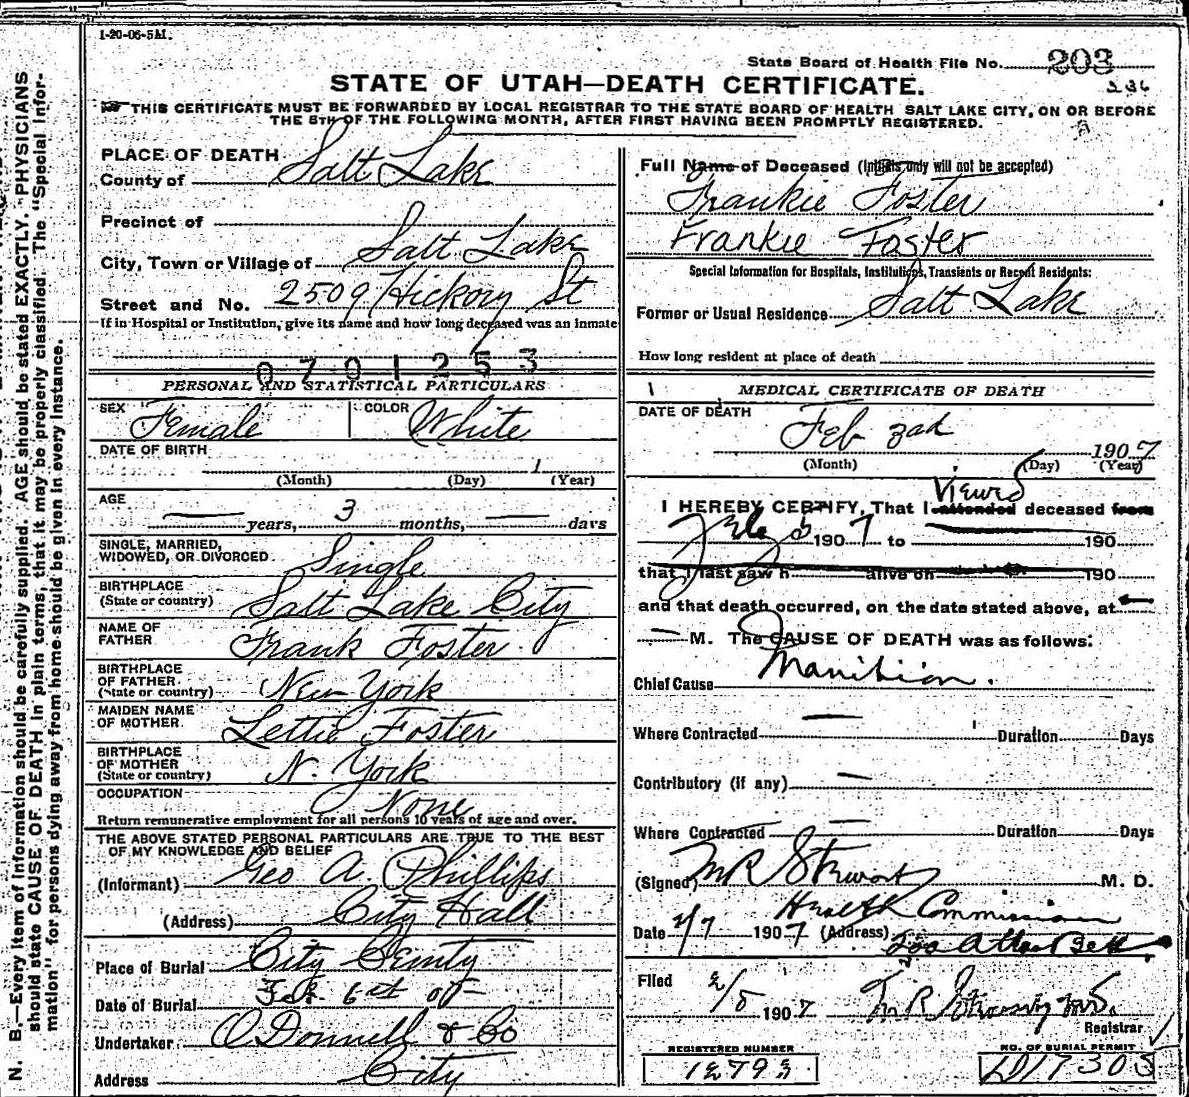 1-20-06-5M.
State Board of Health File No. 203
236
STATE OF UTAH—DEATH CERTIFICATE.
THIS CERTIFICATE MUST BE FORWARDED BY LOCAL REGISTRAR TO THE STATE BOARD OF HEALTH SALT LAKE CITY, ON OR BEFORE
THE 8TH OF THE FOLLOWING MONTH, AFTER FIRST HAVING BEEN PROMPTLY REGISTERED.
PLACE OF DEATH
County of Salt Lake
Precinct of
City, Town or Village of Salt Lake
Street and No. 2509 Hickory St
If in Hospital or Institution, give its name and how long deceased was an inmate
0701253
PERSONAL AND STATISTICAL PARTICULARS
SEX Female COLOR White
DATE OF BIRTH
(Month) (Day) 1 (Year)
AGE
— years, 3 months, — days
SINGLE, MARRIED,
WIDOWED, OR DIVORCED Single
BIRTHPLACE
(State or country) Salt Lake City
NAME OF
FATHER Frank Foster
BIRTHPLACE
OF FATHER
(State or country) New York
MAIDEN NAME
OF MOTHER Lettie Foster
BIRTHPLACE
OF MOTHER
(State or country) N. York
OCCUPATION None
Return remunerative employment for all persons 10 years of age and over.
THE ABOVE STATED PERSONAL PARTICULARS ARE TRUE TO THE BEST
OF MY KNOWLEDGE AND BELIEF
(Informant) Geo A. Phillips
(Address) City Hall
Place of Burial City
Date of Burial Feb. 6
Undertaker O Donnell & Co
Address City
Full Name of Deceased (Initials only will not be accepted)
Frankie Foster
Frankie Foster
Special Information for Hospitals, Institutions, Transients or Recent Residents:
Former or Usual Residence Salt Lake
How long resident at place of death
MEDICAL CERTIFICATE OF DEATH
DATE OF DEATH
Feb 1907
(Month) (Day) (Year)
Viewed
I HEREBY CERTIFY, That I attended deceased from
Feb 5 1907 to 190
that I last saw h alive on 190
and that death occurred, on the date stated above, at
— M. The CAUSE OF DEATH was as follows:
Chief Cause
Where Contracted — Duration Days
Contributory (if any) —
Where Contracted — Duration Days
(Signed) M R Stewart M. D.
Health Commissioner
Date 2/7 1907 (Address)
Filed 2/5 1907 M R Stewart
Registrar
REGISTERED NUMBER
NO. OF BURIAL PERMIT
12793
D17303
N. B.—Every item of information should be carefully supplied. AGE should be stated EXACTLY. PHYSICIANS
should state CAUSE OF DEATH in plain terms, that it may be properly classified. The "Special Infor-
mation" for persons dying away from home should be given in every instance.